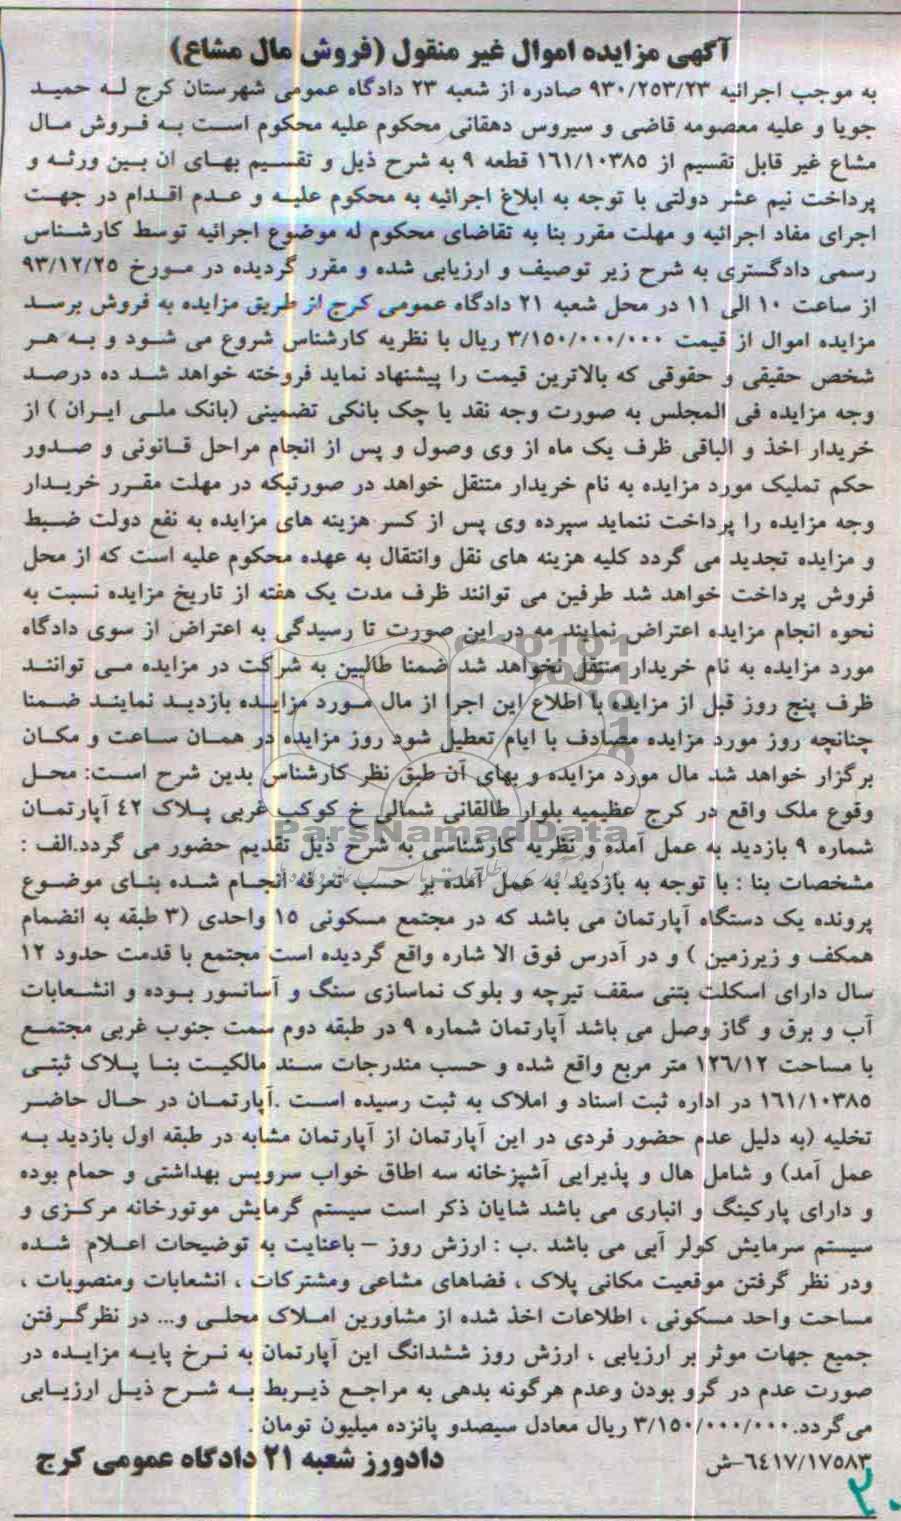 آگهی مزایده اموال غیر منقول (فروش مال مشاع)
به موجب اجرائیه ۹۳۰/۲۵۳/۲۳ صادره از شعبه ۲۳ دادگاه عمومی شهرستان کرج لـه حمیـد
جویا و علیه معصومه قاضی و سیروس دهقانی محکوم علیه محکوم اسـت بـه فـروش مـال
مشاع غیر قابل تقسیم از ۱۶۱/۱۰۳۸۵ قطعه ۹ به شرح ذیل و تقـسیم بهـای ان بـین ورثـه و
پرداخت نیم عشر دولتی با توجه به ابلاغ اجرائیه به محکوم علیـه و عـدم اقـدام در جهـت
اجرای مفاد اجرائیه و مهلت مقرر بنا به تقاضای محکوم له موضوع اجرائیه توسط کارشـناس
رسمی دادگستری به شرح زیر توصیف و ارزیابی شده و مقرر گردیده در مـورخ ۹۳/۱۲/۲۵
از ساعت ۱۰ الی ۱۱ در محل شعبه ۲۱ دادگاه عمومی کرج از طریق مزایده به فروش برسـد
مزایده اموال از قیمت ۳/۱۵۰/۰۰۰/۰۰۰ ریال با نظریه کارشناس شروع می شـود و بـه هـر
شخص حقیقی و حقوقی که بالاترین قیمت را پیشنهاد نماید فروخته خواهد شـد ده درصـد
وجه مزایده فی المجلس به صورت وجه نقد یا چک بانکی تضمینی (بانک ملـی ایـران ) از
خریدار اخذ و الباقی ظرف یک ماه از وی وصول و پس از انجام مراحل قـانونی و صـدور
حکم تملیک مورد مزایده به نام خریدار منتقل خواهد در صورتیکه در مهلت مقـرر خریـدار
وجه مزایده را پرداخت ننماید سپرده وی پس از کسر هزینه های مزایده به نفع دولت ضـبط
و مزایده تجدید می گردد کلیه هزینه های نقل وانتقال به عهده محکوم علیه است که از محل
فروش پرداخت خواهد شد طرفین می توانند ظرف مدت یک هفته از تاریخ مزایده نسبت به
نحوه انجام مزایده اعتراض نمایند مه در این صورت تا رسیدگی به اعتراض از سوی دادگاه
مورد مزایده به نام خریدار منتقل نخواهد شد ضمنا طالبین به شرکت در مزایده مـی تواننـد
ظرف پنج روز قبل از مزایده با اطلاع این اجرا از مال مـورد مزایـده بازدیـد نماینـد ضـمنا
چنانچه روز مورد مزایده مصادف با ایام تعطیل شود روز مزایده در همـان سـاعت و مکـان
برگزار خواهد شد مال مورد مزایده و بهای آن طبق نظر کارشناس بدین شرح اسـت: محـل
وقوع ملک واقع در کرج عظیمیه بلوار طالقانی شمالی خ کوکب غربی پـلاک ۴۲ آپارتمـان
شماره ۹ بازدید به عمل آمده و نظریه کارشناسی به شرح ذیل تقدیم حضور می گردد.الف :
مشخصات بنا : با توجه به بازدید به عمل آمده بر حسب تعرفه انجـام شـده بنـای موضـوع
پرونده یک دستگاه آپارتمان می باشد که در مجتمع مسکونی ۱۵ واحدی (۳ طبقه به انضمام
همکف و زیرزمین ) و در آدرس فوق الا شاره واقع گردیده است مجتمع با قدمت حدود ۱۲
سال دارای اسکلت بتنی سقف تیرچه و بلوک نماسازی سنگ و آسانسور بـوده و انشـعابات
آب و برق و گاز وصل می باشد آپارتمان شماره ۹ در طبقه دوم سمت جنوب غربی مجتمـع
با مساحت ۱۲۶/۱۲ متر مربع واقع شده و حسب مندرجات سـند مالکیـت بنـا پـلاک ثبتـی
۱۶۱/۱۰۳۸۵ در اداره ثبت اسناد و املاک به ثبت رسیده اسـت .آپارتمـان در حـال حاضـر
تخلیه (به دلیل عدم حضور فردی در این آپارتمان از آپارتمان مشابه در طبقه اول بازدید بـه
عمل آمد) و شامل هال و پذیرایی آشپزخانه سه اطاق خواب سرویس بهداشتی و حمام بوده
و دارای پارکینگ و انباری می باشد شایان ذکر است سیستم گرمایش موتورخانه مرکـزی و
سیستم سرمایش کولر آبی می باشد .ب : ارزش روز – باعنایت به توضیحات اعـلام شـده
ودر نظر گرفتن موقعیت مکانی پلاک ، فضاهای مشاعی ومشترکات ، انشعابات ومنصوبات ،
مساحت واحد مسکونی ، اطلاعات اخذ شده از مشاورین امـلاک محلـی و... در نظرگـرفتن
جمیع جهات موثر بر ارزیابی ، ارزش روز ششدانگ این آپارتمان به نـرخ پایـه مزایـده در
صورت عدم در گرو بودن وعدم هرگونه بدهی به مراجع ذیـربط بـه شـرح ذیـل ارزیـابی
می‌گردد.۳/۱۵۰/۰۰۰/۰۰۰ ریال معادل سیصدو پانزده میلیون تومان .
۶۴۱۷/۱۷۵۸۳-ش
دادورز شعبه ۲۱ دادگاه عمومی کرج
ParsNamadData